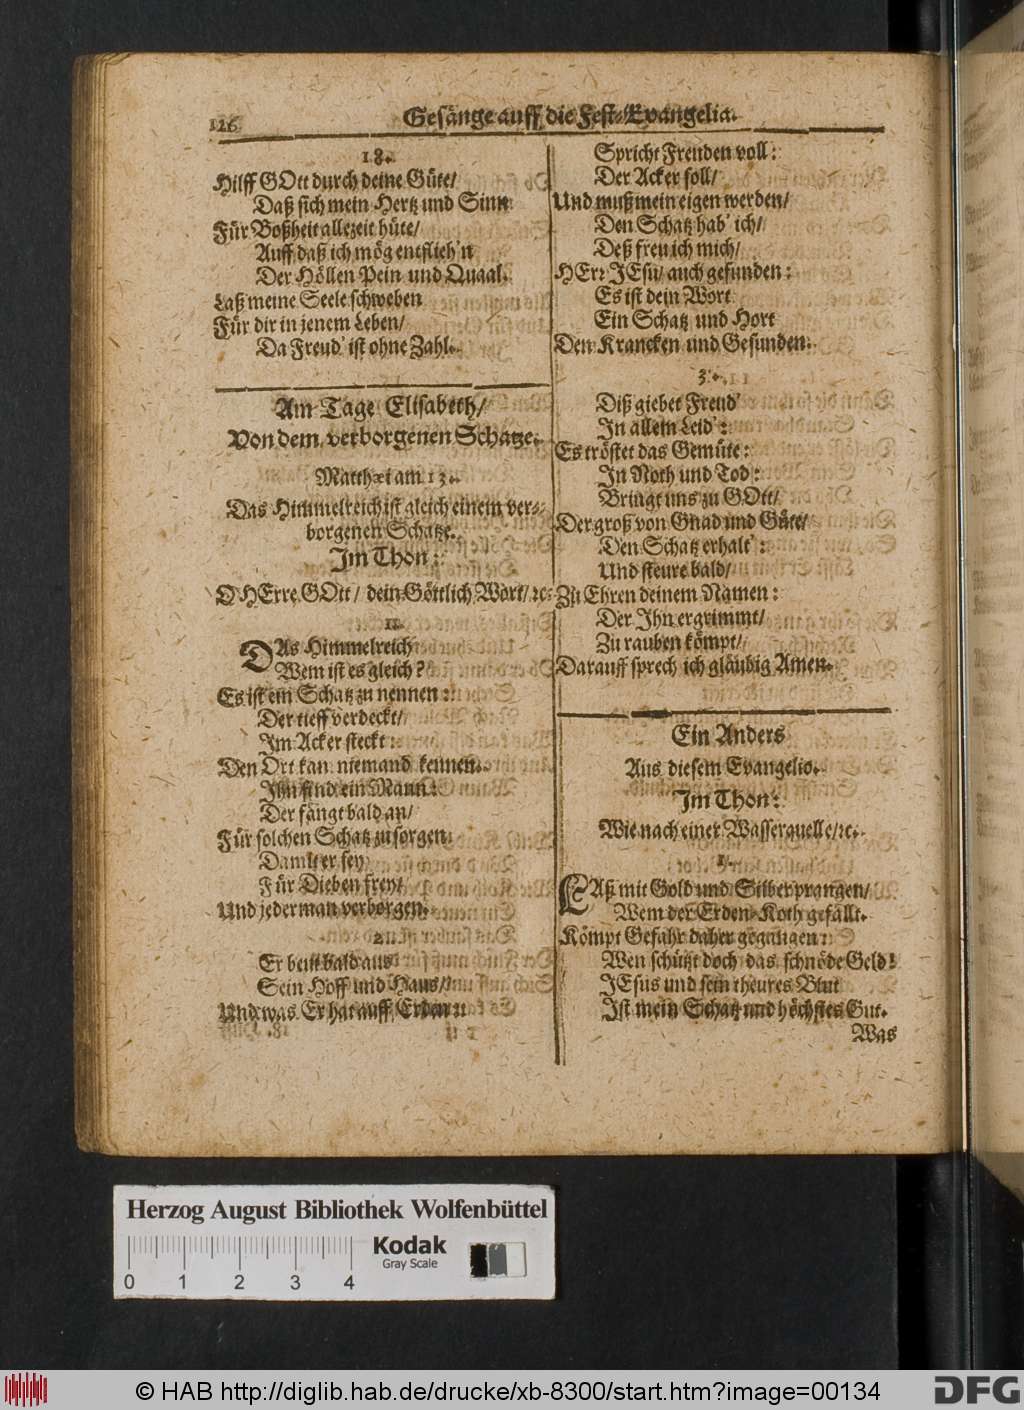 126.
Gesänge auff die Fest-Evangelia.
18.
Hilff GOtt durch deine Güte/
Daß sich mein Hertz und Sinn
Für Boßheit allezeit hüte/
Auff daß ich mög entflieh'n
Der Höllen Pein und Quaal.
Laß meine Seele schweben
Für dir in jenem Leben/
Da Freud' ist ohne Zahl.
Am Tage Elisabeth/
Von dem verborgenen Schatze.
Matthæi am 13.
Das Himmelreich ist gleich einem ver-
borgenen Schatze.
Im Thon:
O HErre GOtt/ dein Göttlich Wort/ ꝛc.
1.
DAs Himmelreich
Wem ist es gleich?
Es ist ein Schatz zu nennen:
Der tieff verdeckt/
Im Acker steckt:
Den Ort kan niemand kennen.
Ihn find ein Mann:
Der fängt bald an/
Für solchen Schatz zu sorgen:
Damit er sey
Für Dieben frey/
Und jederman verborgen.
2.
Er beut bald aus
Sein Hoff und Haus/
Und was Er hat auff Erden:
Spricht Freuden voll:
Der Acker soll/
Und muß mein eigen werden/
Den Schatz hab' ich/
Deß freu ich mich/
HErr JEsu/ auch gefunden:
Es ist dein Wort
Ein Schatz und Hort
Den Krancken und Gesunden.
3.
Diß giebet Freud'
In allem Leid':
Es tröstet das Gemüte:
In Noth und Tod:
Bringt uns zu GOtt/
Der groß von Gnad und Güte/
Den Schatz erhalt':
Und steure bald/
Zu Ehren deinem Namen:
Der Ihn ergrimmt/
Zu rauben kömpt/
Darauff sprech ich gläubig Amen.
Ein Anders
Aus diesem Evangelio.
Im Thon:
Wie nach einer Wasserquelle/ ꝛc.
1.
LAß mit Gold und Silber prangen/
Wem der Erden-Koth gefällt.
Kömpt Gefahr daher gegangen:
Wen schützt doch das schnöde Geld!
JEsus und sein theures Blut
Ist mein Schatz und höchstes Gut.
Was
Herzog August Bibliothek Wolfenbüttel
Kodak
Gray Scale
0 1 2 3 4
© HAB http://diglib.hab.de/drucke/xb-8300/start.htm?image=00134
DFG